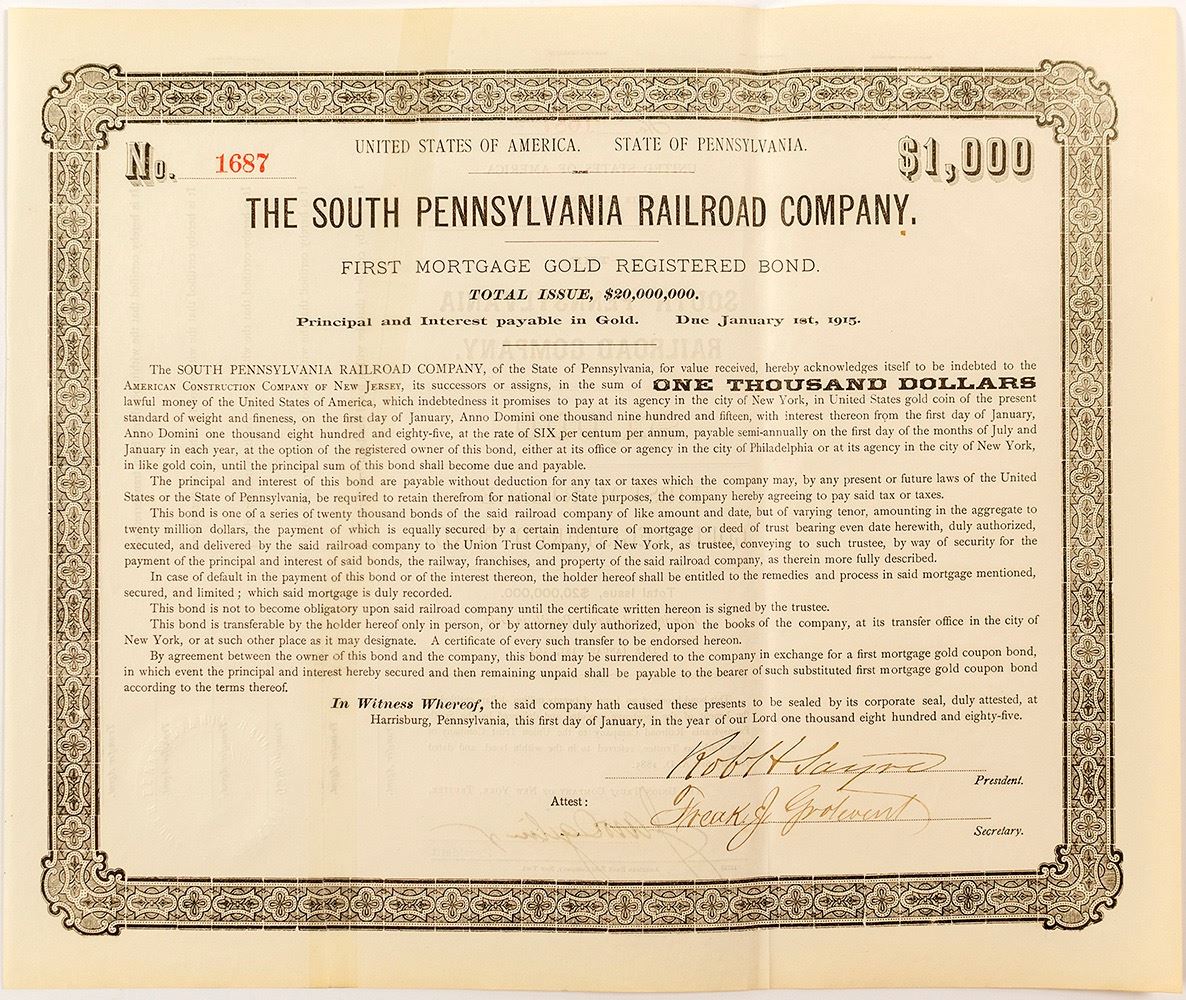 No. 1687
UNITED STATES OF AMERICA. STATE OF PENNSYLVANIA.
$1,000
THE SOUTH PENNSYLVANIA RAILROAD COMPANY.
FIRST MORTGAGE GOLD REGISTERED BOND.
TOTAL ISSUE, $20,000,000.
Principal and Interest payable in Gold. Due January 1st, 1915.
The SOUTH PENNSYLVANIA RAILROAD COMPANY, of the State of Pennsylvania, for value received, hereby acknowledges itself to be indebted to the
AMERICAN CONSTRUCTION COMPANY OF NEW JERSEY, its successors or assigns, in the sum of ONE THOUSAND DOLLARS
lawful money of the United States of America, which indebtedness it promises to pay at its agency in the city of New York, in United States gold coin of the present
standard of weight and fineness, on the first day of January, Anno Domini one thousand nine hundred and fifteen, with interest thereon from the first day of January,
Anno Domini one thousand eight hundred and eighty-five, at the rate of SIX per centum per annum, payable semi-annually on the first day of the months of July and
January in each year, at the option of the registered owner of this bond, either at its office or agency in the city of Philadelphia or at its agency in the city of New York,
in like gold coin, until the principal sum of this bond shall become due and payable.
The principal and interest of this bond are payable without deduction for any tax or taxes which the company may, by any present or future laws of the United
States or the State of Pennsylvania, be required to retain therefrom for national or State purposes, the company hereby agreeing to pay said tax or taxes.
This bond is one of a series of twenty thousand bonds of the said railroad company of like amount and date, but of varying tenor, amounting in the aggregate to
twenty million dollars, the payment of which is equally secured by a certain indenture of mortgage or deed of trust bearing even date herewith, duly authorized,
executed, and delivered by the said railroad company to the Union Trust Company, of New York, as trustee, conveying to such trustee, by way of security for the
payment of the principal and interest of said bonds, the railway, franchises, and property of the said railroad company, as therein more fully described.
In case of default in the payment of this bond or of the interest thereon, the holder hereof shall be entitled to the remedies and process in said mortgage mentioned,
secured, and limited; which said mortgage is duly recorded.
This bond is not to become obligatory upon said railroad company until the certificate written hereon is signed by the trustee.
This bond is transferable by the holder hereof only in person, or by attorney duly authorized, upon the books of the company, at its transfer office in the city of
New York, or at such other place as it may designate. A certificate of every such transfer to be endorsed hereon.
By agreement between the owner of this bond and the company, this bond may be surrendered to the company in exchange for a first mortgage gold coupon bond,
in which event the principal and interest hereby secured and then remaining unpaid shall be payable to the bearer of such substituted first mortgage gold coupon bond
according to the terms thereof.
In Witness Whereof, the said company hath caused these presents to be sealed by its corporate seal, duly attested, at
Harrisburg, Pennsylvania, this first day of January, in the year of our Lord one thousand eight hundred and eighty-five.
Robt H Sayre
President.
Attest:
Secretary.